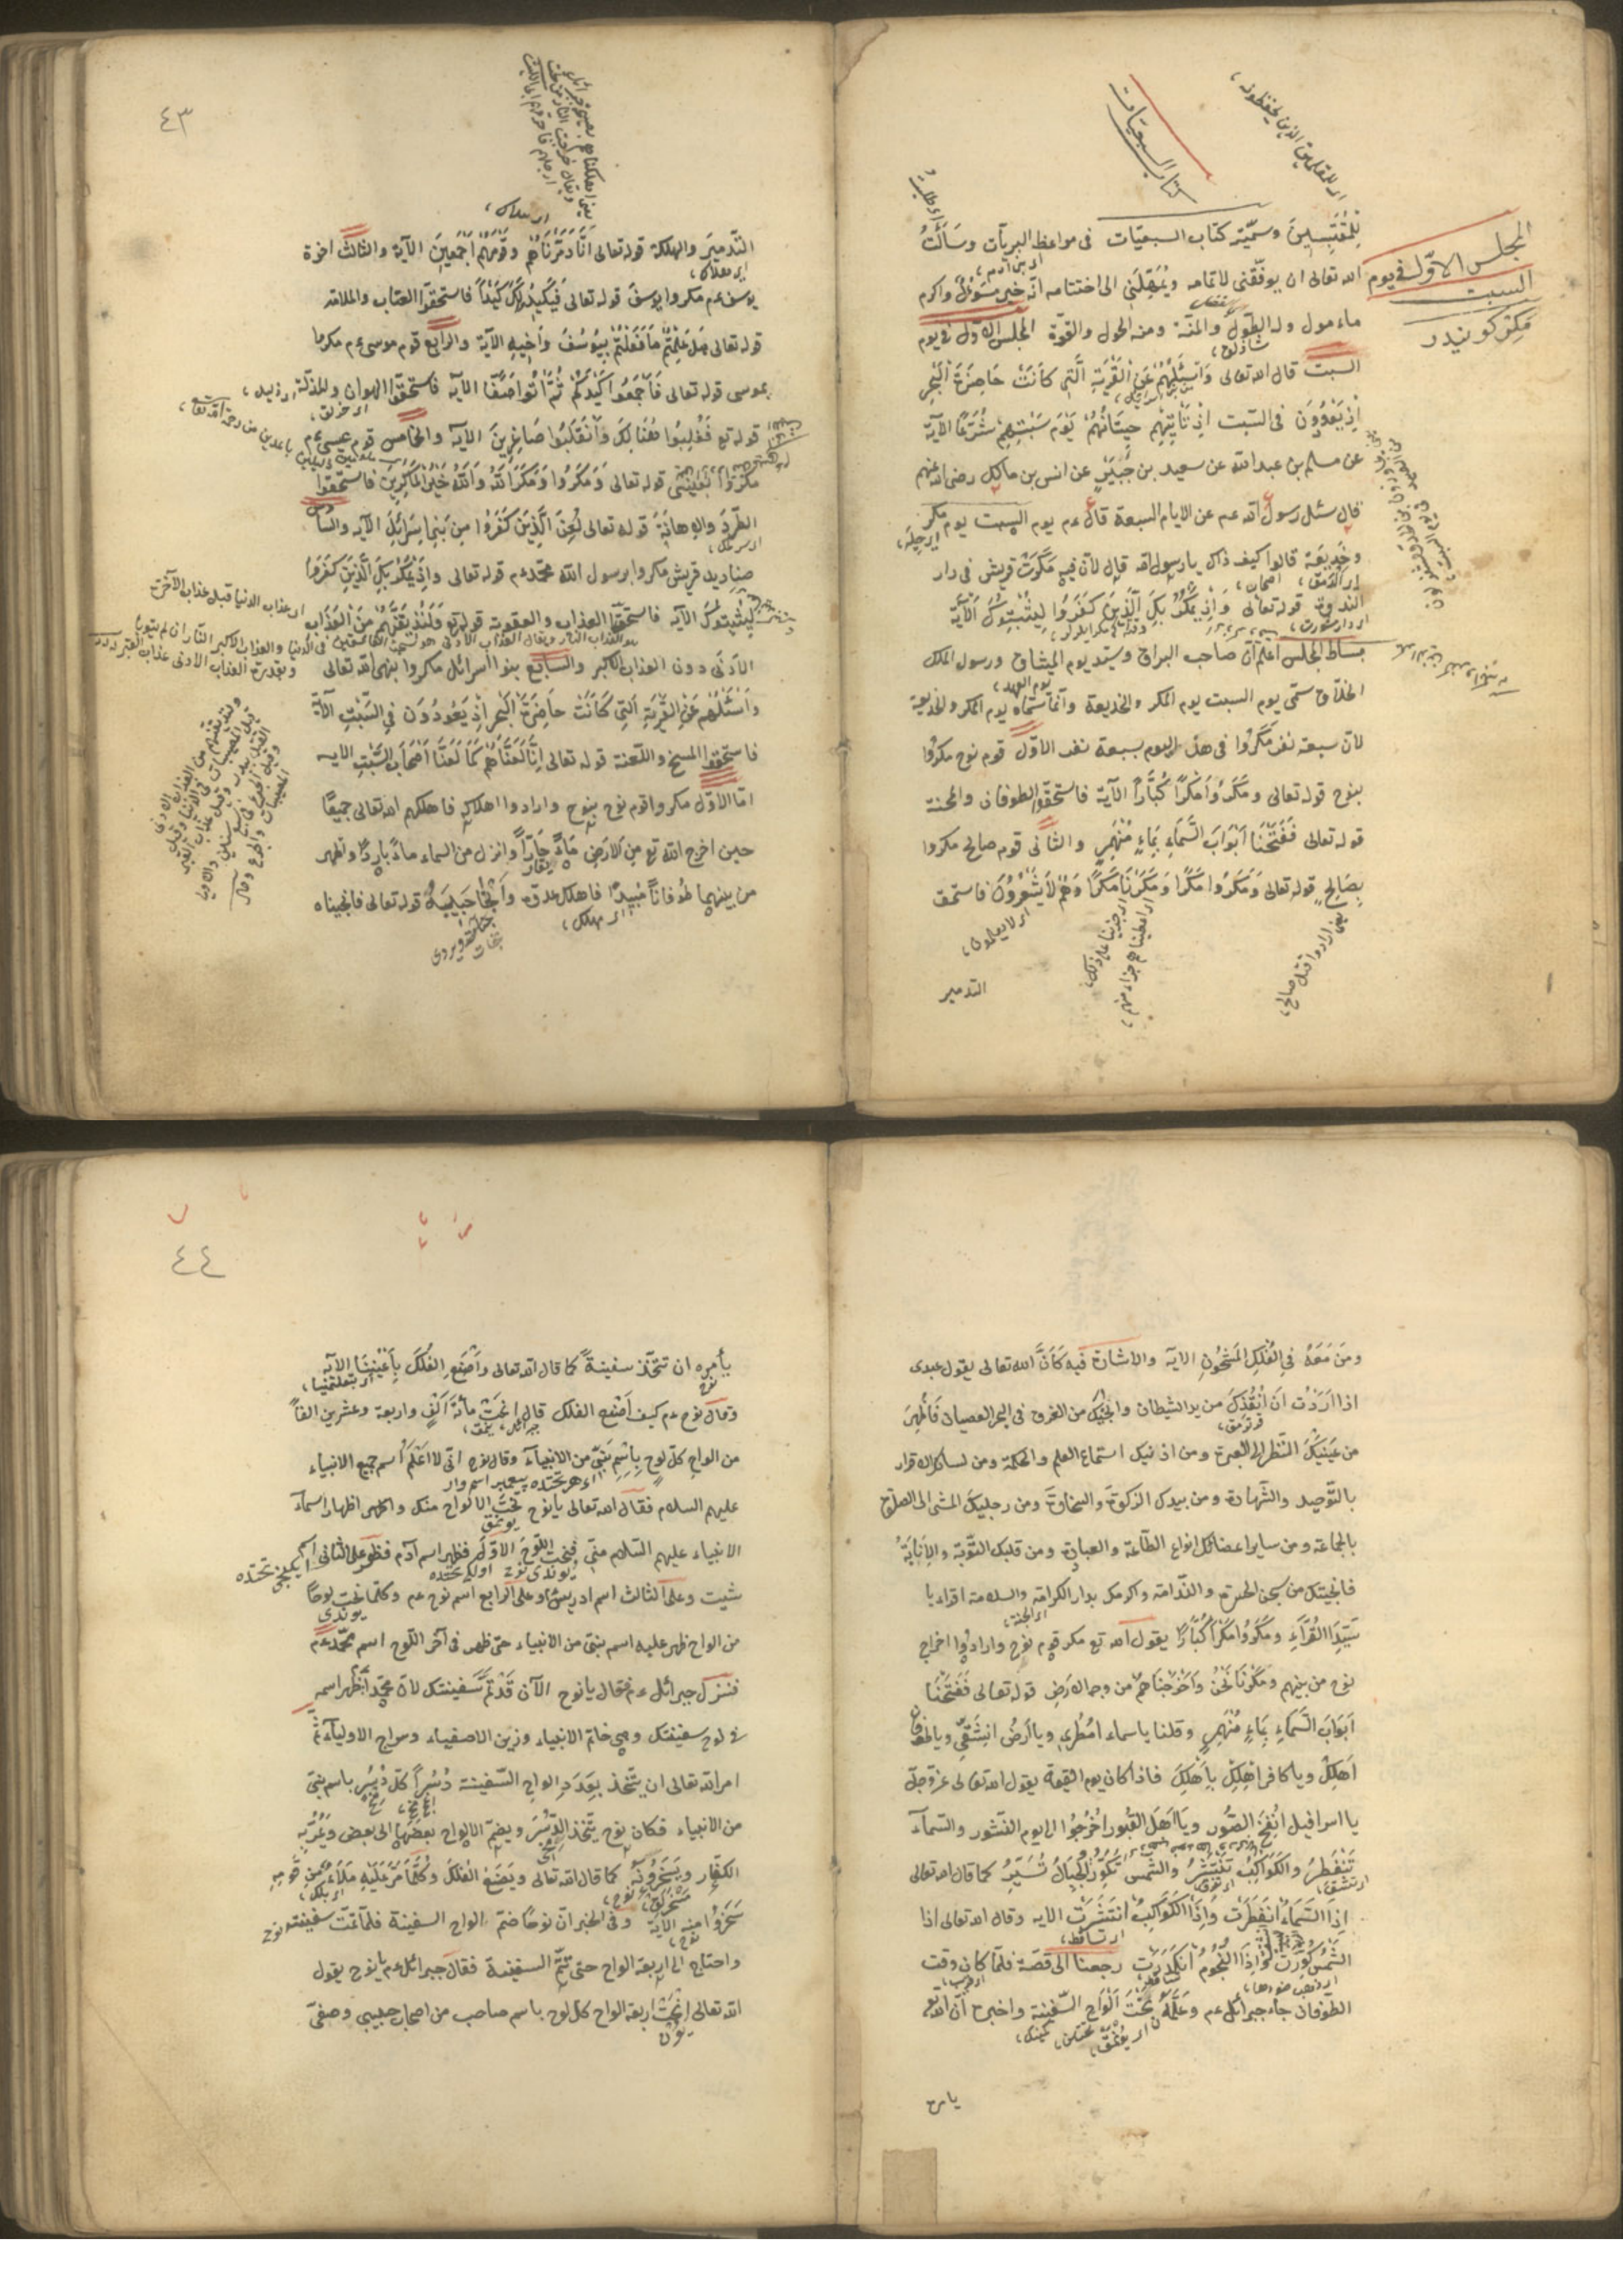 كتاب السبعيات
اى للمقلدين الذين يحفظونه
المجلس الاوّل فى يوم
السبت
مكر كونيدر
لِلمُقتَبِسِينَ وسمّيته كتاب السبعيّات فى مواعظ البريّات وسَأَلْتُ
الله تعالى ان يوفّقنى لاتمامه ويُمَهِّلَنى الى اختتامه انّه خير مسؤل واكرم
ماءمول وله الطَّول والمنّة ومنه الحول والقوّة المجلس الاوّل فى يوم
السبت قال الله تعالى وَاسْئَلْهُمْ عَنِ الْقَرْيَةِ الَّتِى كَانَتْ حَاضِرَةَ الْبَحْرِ
اِذْ يَعْدُونَ فى السَّبت اِذْ تَأْتِيهِمْ حِيتَانُهُمْ يَوْمَ سَبْتِهِمْ شُرَّعًا الآية
عن مسلم بن عبد الله عن سعيد بن جُبَيْرٍ عن انس بن مالك رضى الله عنهم
قال سئل رسول الله عم عن الايام السبعة قال عم يوم السبت يوم مكر
وخَدِيعَة قالوا كيف ذاك يا رسول الله قال لانّ فيه مَكَرَتْ قريش فى دار
الندوة قوله تعالى وَاِذْ يَمْكُرُ بِكَ الَّذِينَ كَفَرُوا لِيُثْبِتُوكَ الْاٰيَة
بساط المجلس اعلم انّ صاحب البراق وسيّد يوم الميثاق ورسول الملك
الخلّاق سمّى يوم السبت يوم المكر والخديعة وانّما سمّاه يوم المكر والخديعة
لانّ سبعة نفر مَكَرُوا فى هذا اليوم بسبعة نفر الاوّل قوم نوح مكروا
بنوح قوله تعالى ومَكَرُوا مَكْرًا كُبَّارًا الآية فاستحقّوا الطوفان والمحنة
قوله تعالى فَفَتَحْنَا اَبْوَابَ السَّمَاءِ بِمَاءٍ مُنْهَمِرٍ والثانى قوم صالح مكروا
بِصَالِحٍ قوله تعالى وَمَكَرُوا مَكْرًا وَمَكَرْنَا مَكْرًا وَهُمْ لَا يَشْعُرُونَ فاستحقّ
اى لا يعلمون
يعنى ارادوا قتل صالح
التدمير
٤٣
التّدمير والهلكة قوله تعالى اِنَّا دَمَّرْنَاهُمْ وَقَوْمَهُمْ اَجْمَعِينَ الآية والثالث اخوة
يوسف عم مكروا يوسف قوله تعالى فَيَكِيدُوا لَكَ كَيْدًا فاستحقّوا العتاب والملامة
قوله تعالى هَلْ عَلِمْتُمْ مَا فَعَلْتُمْ بِيُوسُفَ وَاَخِيهِ الآية والرابع قوم موسى عم مكروا
بموسى قوله تعالى فَاَجْمِعُوا كَيْدَكُمْ ثُمَّ ائْتُوا صَفًّا الآية فاستحقّوا الهوان والمذلّة
قوله تع فَغُلِبُوا هُنَالِكَ وَانْقَلَبُوا صَاغِرِينَ الآية والخامس قوم عيسى عم
مَكَرُوا بعيسى قوله تعالى وَمَكَرُوا وَمَكَرَ اللّٰهُ وَاللّٰهُ خَيْرُ الْمَاكِرِينَ فاستحقّوا
الطّردَ والاهانة قوله تعالى لُعِنَ الَّذِينَ كَفَرُوا مِنْ بَنِى اِسْرَائِلَ الآية والسادس
صناديد قريش مكروا برسول الله محمّد عم قوله تعالى وَاِذْ يَمْكُرُ بِكَ الَّذِينَ كَفَرُوا
لِيُثْبِتُوكَ الآية فاستحقّوا العذاب والعقوبة قوله تع وَلَنُذِيقَنَّهُمْ مِنَ الْعَذَابِ
الاَدْنَى دون العذاب الاكبر والسابع بنوا اسرائل مكروا بنهى الله تعالى
وَاسْئَلْهُمْ عَنِ الْقَرْيَةِ الَّتِى كَانَتْ حَاضِرَةَ الْبَحْرِ اِذْ يَعْدُونَ فِى السَّبْتِ الآية
فاستحقّوا المسخ واللّعنة قوله تعالى اِنَّا لَعَنَّاهُمْ كَمَا لَعَنَّا اَصْحَابَ السَّبْتِ الآية
امّا الاوّل مكروا قوم نوح بنوح وارادوا اهلاكه فاهلكهم الله تعالى جميعًا
حين اخرج الله تع من الارض ماءً حَارًّا وانزل من السماء ماءً باردًا وظهر
من بينهما طُوفانًا مُبيدًا فاهلك عدوّه وأنْجَا حَبِيبَهُ قوله تعالى فانجيناه
اى مهلك
ومَنْ مَعَهُ فِى الْفُلْكِ الْمَشْحُونِ الآية والاشارة فيه كَاَنَّ الله تعالى يقول عبدى
اذا اَرَدْتُ اَنْ اُنْقِذَكَ من يد الشيطان واُنْجِيَكَ من الغرق فى بحر العصيان فَاَظْهِرْ
من عَيْنَيْكَ النّظر الى العبرة ومن اذنيك استماع العلم والحكمة ومن لسانك الاقرار
بالتّوحيد والشّهادة ومن يديك الزكوةَ والسخاوةَ ومن رجليك المشى الى الصلوة
بالجماعة ومن سائر اعضائك انواع الطّاعة والعبادة ومن قلبك التّوبة والاِنَابَةُ
فانجيتك من سجن الحسرة والنّدامة واكرمك بدار الكرامة والسلامة اقراء يا
سَيِّدَ الْقُرَّاءِ وَمَكَرُوا مَكْرًا كُبَّارًا يقول الله تع مكر قوم نوح وارادوا اخراج
نوح من بينهم ومَكَرْنَا نَحْنُ وَاَخْرَجْنَاهُمْ من وجه الارض قوله تعالى فَفَتَحْنَا
اَبْوَابَ السَّمَاءِ بِمَاءٍ مُنْهَمِرٍ وقلنا يا سماء امْطُرِى ويا اَرضُ انشَقِّى ويا طوفان
اَهْلِكْ ويا كافر اهلك بِاَهْلِكَ فاذا كان يوم القيمة يقول الله تعالى عزّ وجلّ
يا اسرافيل اُنْفُخْ الصُّور وَيَا اَهْلَ الْقُبُورِ اُخْرُجُوا الى يوم النّشور والسّمآء
تَنْفَطِرُ والكَوَاكِبُ تَنْتَثِرُ والشَّمْسُ تُكَوَّرُ والْجِبَالُ تُسَيَّرُ كما قال الله تعالى
اِذَا السَّمَاءُ انْفَطَرَتْ وَاِذَا الْكَوَاكِبُ انْتَثَرَتْ الآية وقال الله تعالى اذا
الشَّمْسُ كُوِّرَتْ وَاِذَا النُّجُومُ انْكَدَرَتْ رجعنا الى قصّة فلمّا كان وقت
الطّوفان جاء جبرائل عم وعَلَّمَهُ نَحْتَ اَلْوَاحِ السَّفينة واخبره انّ الله تع
يامره
٤٤
يأمره ان تتّخذ سفينةً كما قال الله تعالى وَاصْنَعِ الْفُلْكَ بِاَعْيُنِنَا الآية
وقال نوح عم كيف اَصْنَعُ الفلك قال اِنْحَتْ مائة اَلْفٍ واربعة وعشرين الفًا
من الواح كلّ لَوْحٍ بِاسْمِ نَبِىّ من الانبيآء وقال نوح انّى لا اَعْلَمُ اسم جميع الانبياء
عليهم السلام فقال الله تعالى يا نوح نَحْتُ الالواح منك والىّ اظهار اسمآء
الانبياء عليهم السّلام منّى فنحت اللّوح الاوّل فظهر اسم آدم فظهر على الثانى اسم
شيت وعلى الثالث اسم ادريس وعلى الرابع اسم نوح عم وكلّما نحت لوحًا
من الواح ظهر عليه اسم نبىّ من الانبياء حتّى ظهر فى آخر اللّوح اسم محمّد عم
فنزل جبرائل عم فقال يا نوح الآن قَدْ تَمَّ سَفينتك لانّ محمّدًا ظهر اسمه
فى لوح سفينتك وهى خاتم الانبياء وزين الاصفياء وسراج الاوليآء ثمّ
امر الله تعالى ان يتّخذ بِعَدَدِ الواح السّفينة دُسُرًا كلّ دُسُرٍ باسم نبىّ
من الانبياء فكان نوح يتّخذ الدُّسُرَ ويضمّ الالواح بعضها الى بعض ويَمُرُّ به
الكفّار ويَسْخَرُونَهُ كما قال الله تعالى وَيَصْنَعُ الْفُلْكَ وَكُلَّمَا مَرَّ عَلَيْهِ مَلَأٌ مِنْ قَوْمِهِ
سَخِرُوا مِنْهُ الآية وفى الخبر انّ نوحًا ضمّ الواح السفينة فلمّا تمّت سفينته نوح
واحتاج الى اربعة الواح حتى تتمّ السفينة فقال جبرائل عم يا نوح يقول
الله تعالى اِنْحَتْ اربعة الواح كلّ لوح باسم صاحب من اصحاب حبيبى وصفىّ